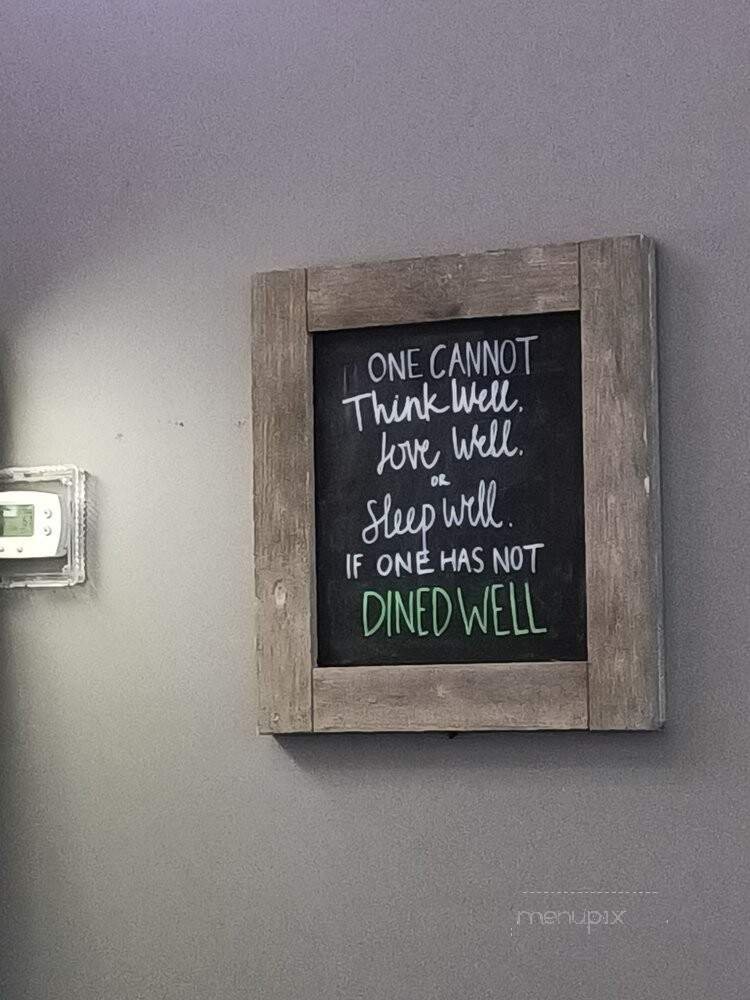 ONE CANNOT
Think Well.
Love Well.
OR
Sleep Well.
IF ONE HAS NOT
DINED WELL
menupix